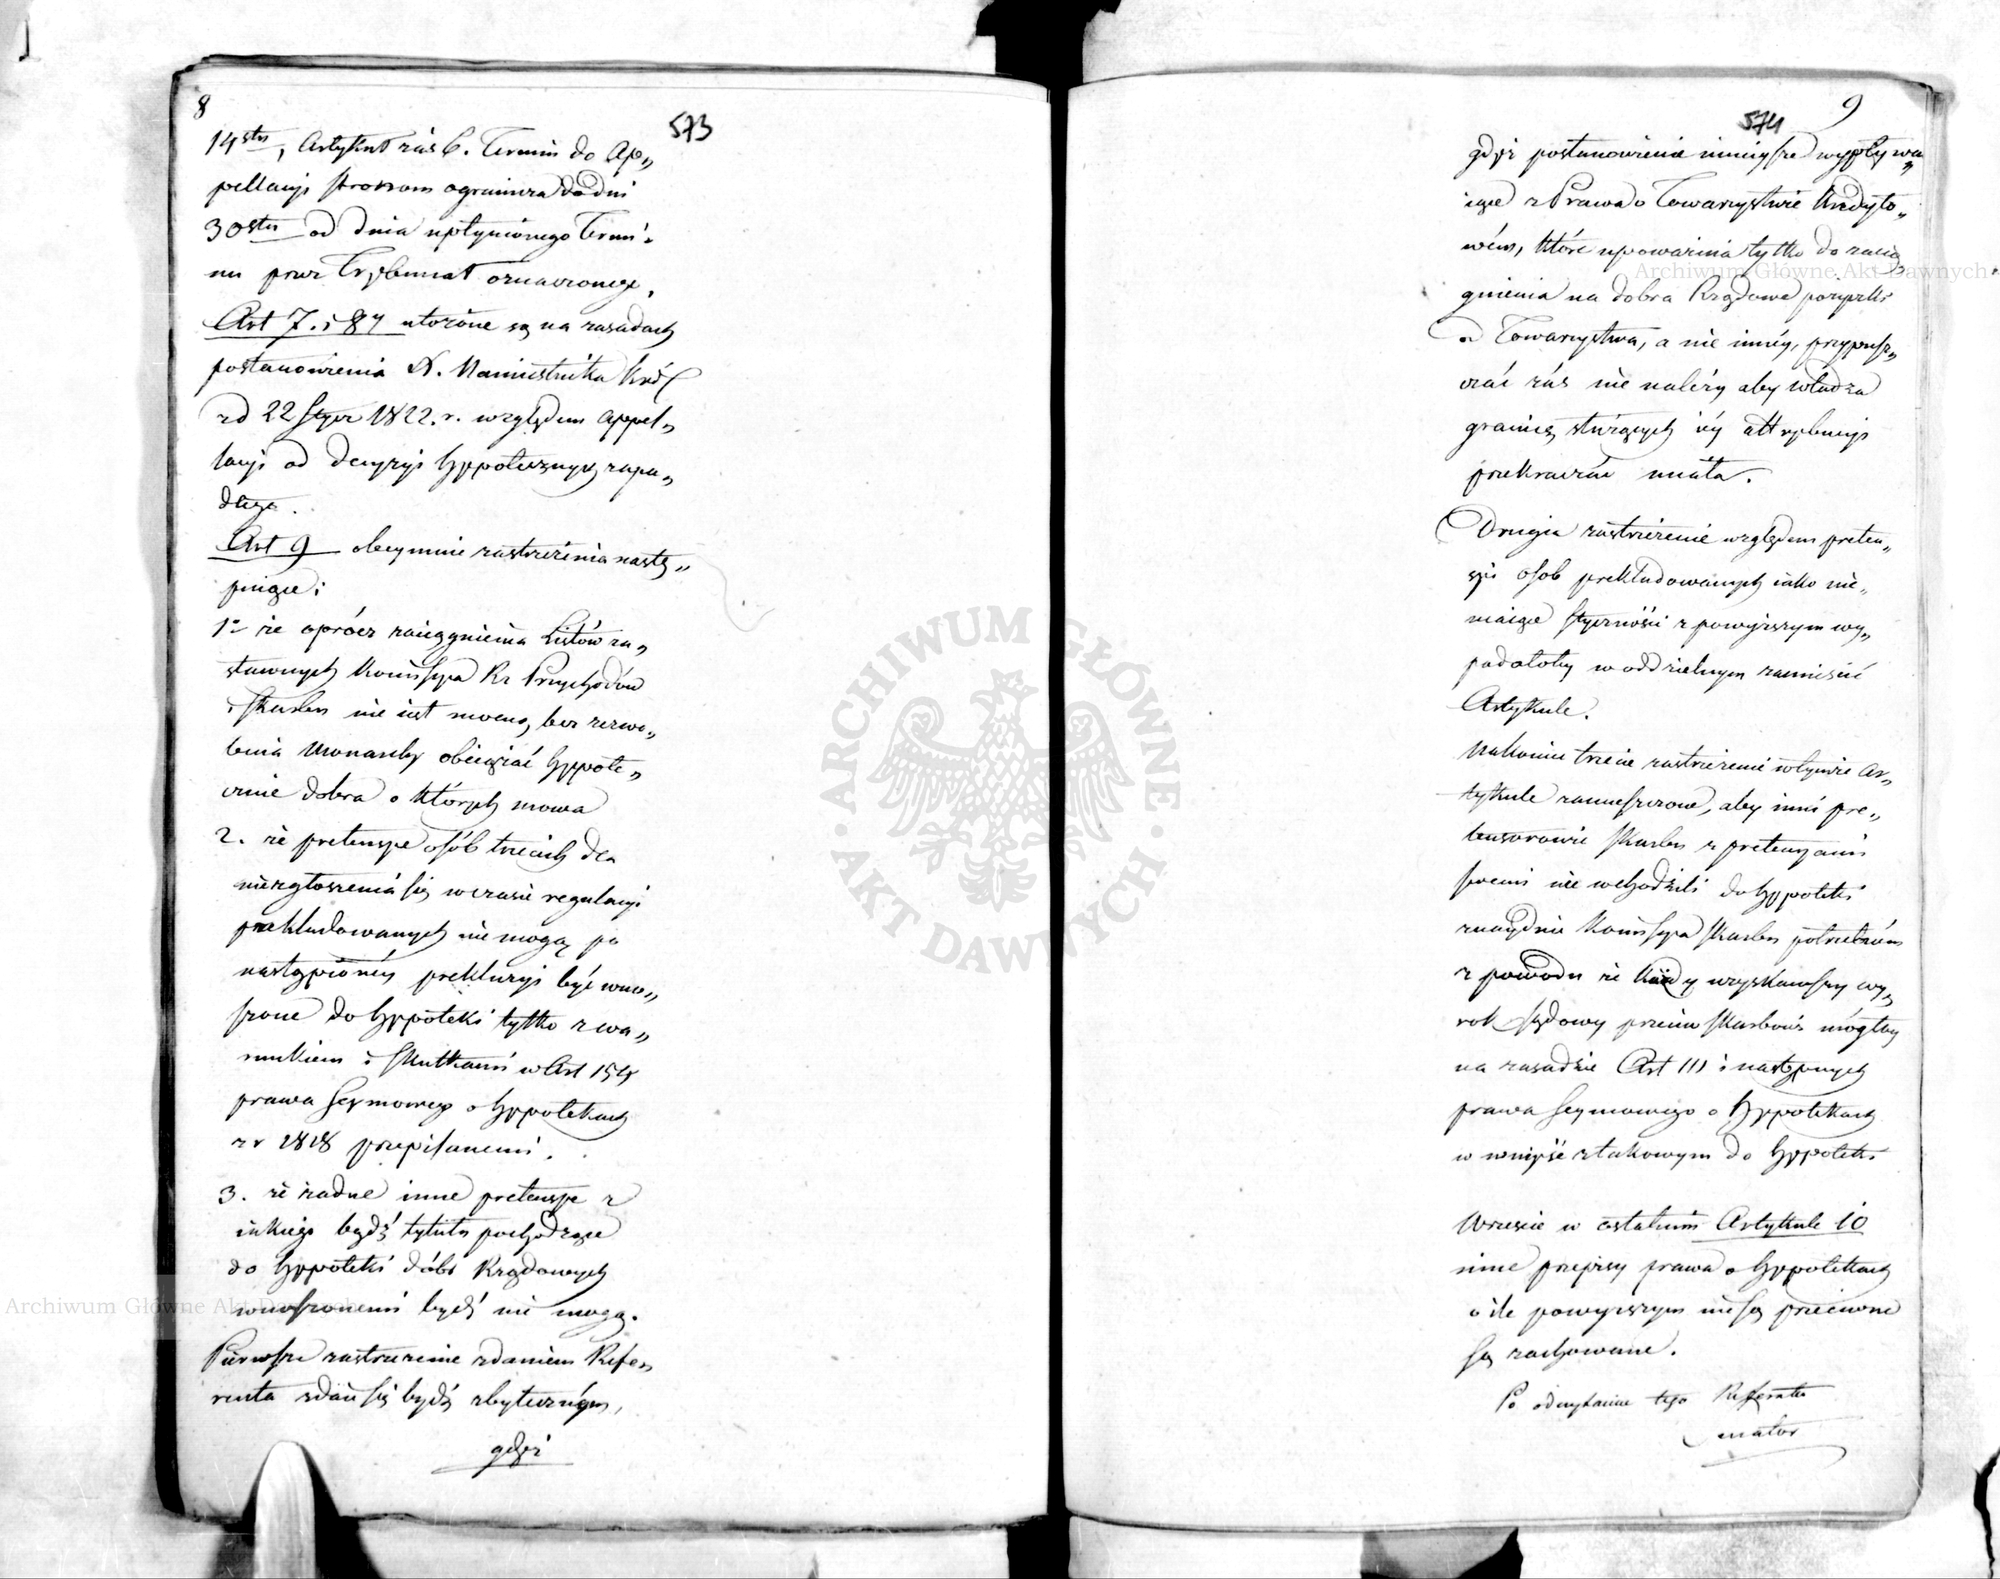 8
573
14stu, Artykuł zaś 6. Termin do Ap„
pellacyi stronom ogranicza do dni
30stu od dnia upłynionego Termi„
nu przez Trybunał oznaczonego.
Art 7. i 8y ułożone są na zasadach
postanowienia X. Namiestnika Król
zd 22 Stycz 1822. r. względem appel„
lacyi od decyzyi hyppotecznych zapa„
dłego.
Art 9 obeymuie zastrzeżenia nastę„
puiące:
1o że oprócz zaciągnienia Listów za„
stawnych Kommissya Rz Przychodów
i Skarbu nie iest mocną, bez zezwo„
lenia Monarchy obciążać hyppote„
cznie dobra o których mowa
2. że pretensye osób trzecich dla
niezgłoszenia się w czasie regulacyi
prekludowanych nie mogą po
nastąpionéy prekluzyi być wno„
szone do hyppoteki tylko z wa„
runkiem i skutkami w Art 154
prawa Seymowego o hyppotekach
z r 1818 przepisanemi.
3. że żadne inne pretensye z
iakiego bądź tytułu pochodzące
do hyppoteki dóbr Rządowych
wnoszonemi bydź nie mogą.
Pierwsze zastrzeżenie zdaniem Refe„
renta zdaie się bydź zbyteczném,
gdyż
9
574
gdyż postanowienie ninieysze wypływa„
iące z Prawa o Towarzystwie Kredyto„
wém, które upoważnia tylko do zacią„
gnienia na dobra Rządowe pożyczki
od Towarzystwa, a nie innéy, przypusz„
czać zaś nie należy aby władza
granicę służących iéy attrybucyi
przekraczać miała.
Drugie zastrzeżenie względem preten„
syi osób prekludowanych iako nie„
maiące styczności z powyższym wy„
padałoby w oddzielnym zamieścić
Artykule.
Nakoniec trzecie zastrzeżenie w tymże Ar„
tykule zamieszczone, aby inni pre„
tensorowie Skarbu z pretensyami
swemi nie wchodzili do hyppoteki
znayduie Kommissya Skarbu potrzebném
z powodu że każdy uzyskawszy wy„
rok sądowy przeciw Skarbowi mógłby
na zasadzie Art 111 i następnych
prawa Seymowego o hyppotekach
wnieyść z takowym do hyppoteki
Wreszcie w ostatnim Artykule 10
inne przepisy prawa o hyppotekach
o ile powyższym nie są przeciwne
są zachowane.
Po odczytaniu tego Referatu
Senator
ARCHIWUM GŁÓWNE AKT DAWNYCH
Archiwum Główne Akt Dawnych
Archiwum Główne Akt Dawnych